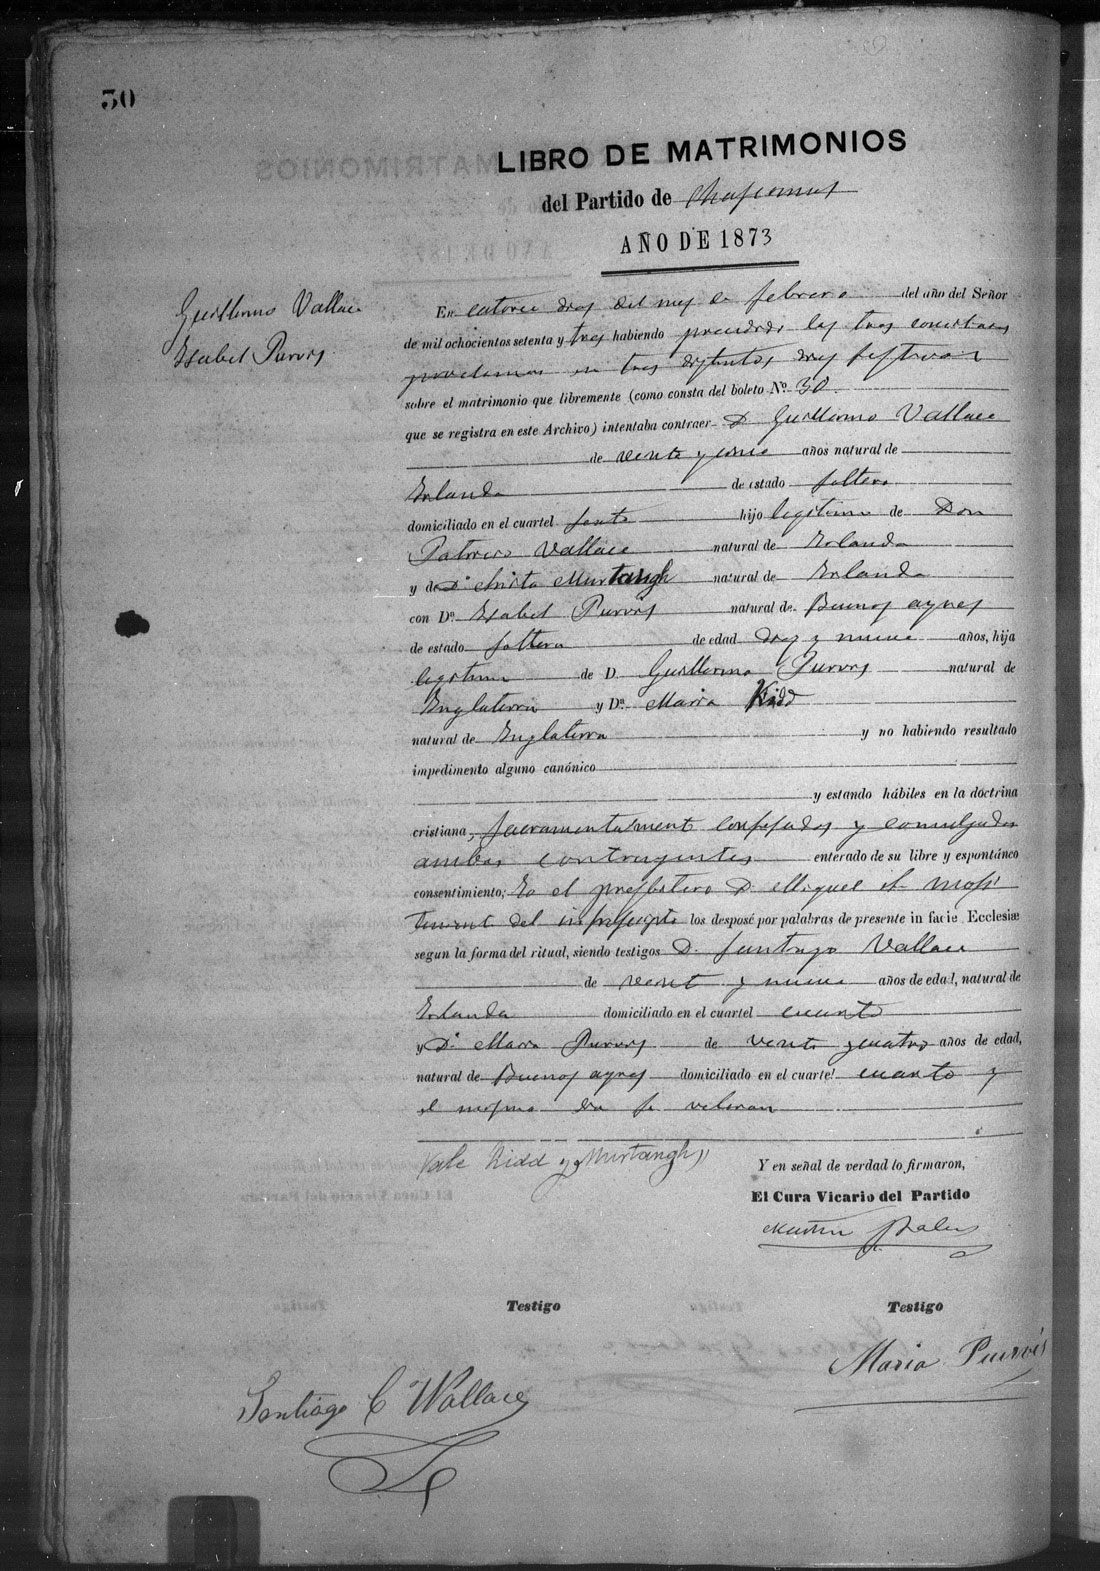 30
LIBRO DE MATRIMONIOS
del Partido de Chascomus
AÑO DE 1873
Guillermo Vallace
Isabel Purvis
En catorce dias del mes de febrero del año del Señor
de mil ochocientos setenta y tres habiendo precedido las tres conciliares
proclamas en tres distintos dias festivos
sobre el matrimonio que libremente (como consta del boleto Nº 30
que se registra en este Archivo) intentaba contraer D Guillermo Vallace
de veinte y cinco años natural de
Irlanda de estado soltero
domiciliado en el cuartel hijo legitimo de Don
Patricio Vallace natural de Irlanda
y de Dª Anita Murtangh natural de Irlanda
con Dª Isabel Purvis natural de Buenos ayres
de estado soltera de edad diez y nueve años, hija
legitima de D. Guillermo Purvis natural de
Inglaterra y Dª Maria Kidd
natural de Inglaterra y no habiendo resultado
impedimento alguno canónico
y estando hábiles en la doctrina
cristiana, sacramentalment confesados y comulgados
ambos contrayentes enterado de su libre y espontáneo
consentimiento; Yo el presbitero D. Miguel
teniente del infrascripto los desposé por palabras de presente in facie Ecclesiæ
segun la forma del ritual, siendo testigos D. Santiago Vallace
de veint y nueve años de edad, natural de
Irlanda domiciliado en el cuartel cuarto
y Dª Maria Purvis de veinte y cuatro años de edad,
natural de Buenos ayres domiciliado en el cuartel cuarto y
el mismo dia se velaron
Vale Kidd y Murtangh
Y en señal de verdad lo firmaron,
El Cura Vicario del Partido
Testigo Testigo
Maria Purvis
Santiago C Wallace